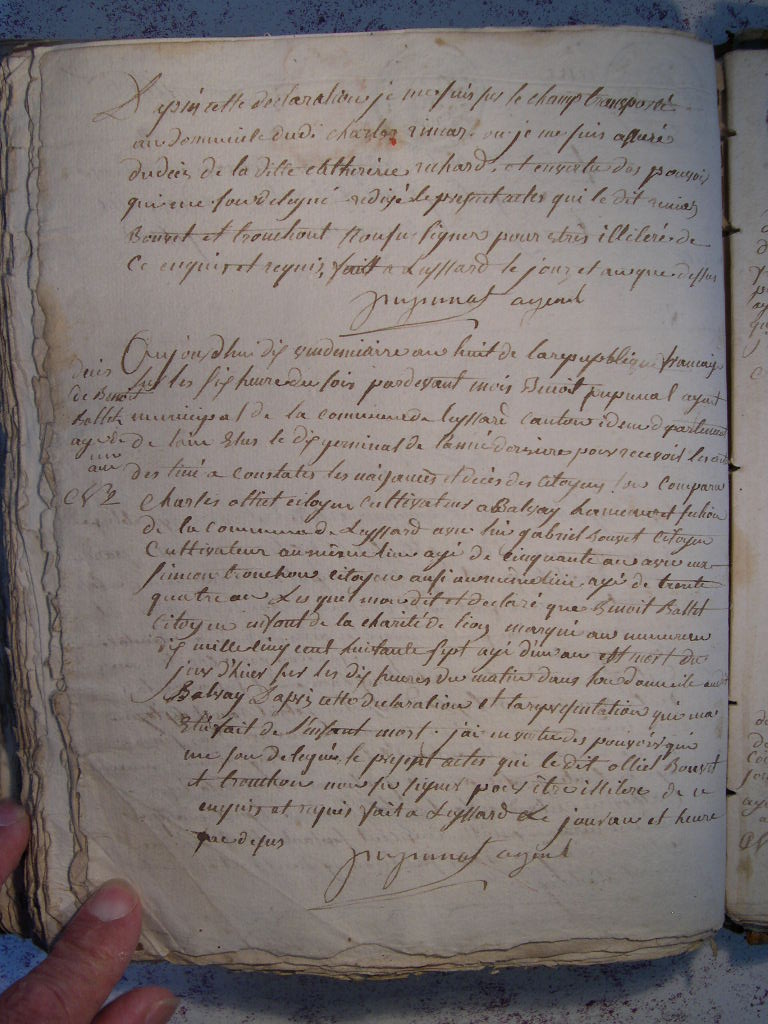 D apsés cette declaration je me suis sur le champ transporté
au domicile dudi charles rivnar ou je me suis assuré
du décés de la ditte chatherine richard et en vertu des pouvoir
qui me son delegué redigé le present actes qui le dit
Bouvet et trouchont non su signer pour etres illiteré de
ce enquis et requis fait a Lessard le jour et an que dessus
pugunat agent
Aujourdhui dix vendemiaire an huit de la republique francaise
sur les six heure du soir par devant mois Benoit pugunat agent
municipal de la commune de lessard canton idem departement
de lain Elus le dix germinal de lanné derniere pour recevoir les actes
destiné a constater les naisances et décés des citoyens son comparu
charles olliet citoyen cultivateur a Balvay hameau et section
de la commune de Lessard avec lui gabriel Bouvet citoyen
Cultivateur au même lieu agé de cinquante an avec
simon trouchon citoyen ausi au même lieu agé de trente
quatre an Les quel mon dit et declaré que Benoit Ballet
citoyen enfont de la charité de lion marqué au numereau
dix mille cinq cent huitante sept agé dun an est mort du
jour d'hier sur les dix heures du matin dans son domicile audit
Balvay D'apris cette declaration et la representation qui ma
Eté fait de l'enfant mort j'ai en vertu des pouvoirs qui
me son delegués le present actes qui le dit olliet Bouvet
et trouchon non su signer pour être illitere de ce
enquis et requis fait a Lessard Le jour an et heure
que desus
pugunat agent
décés
de Benoit
Ballet
agé de
un
an
N° 2